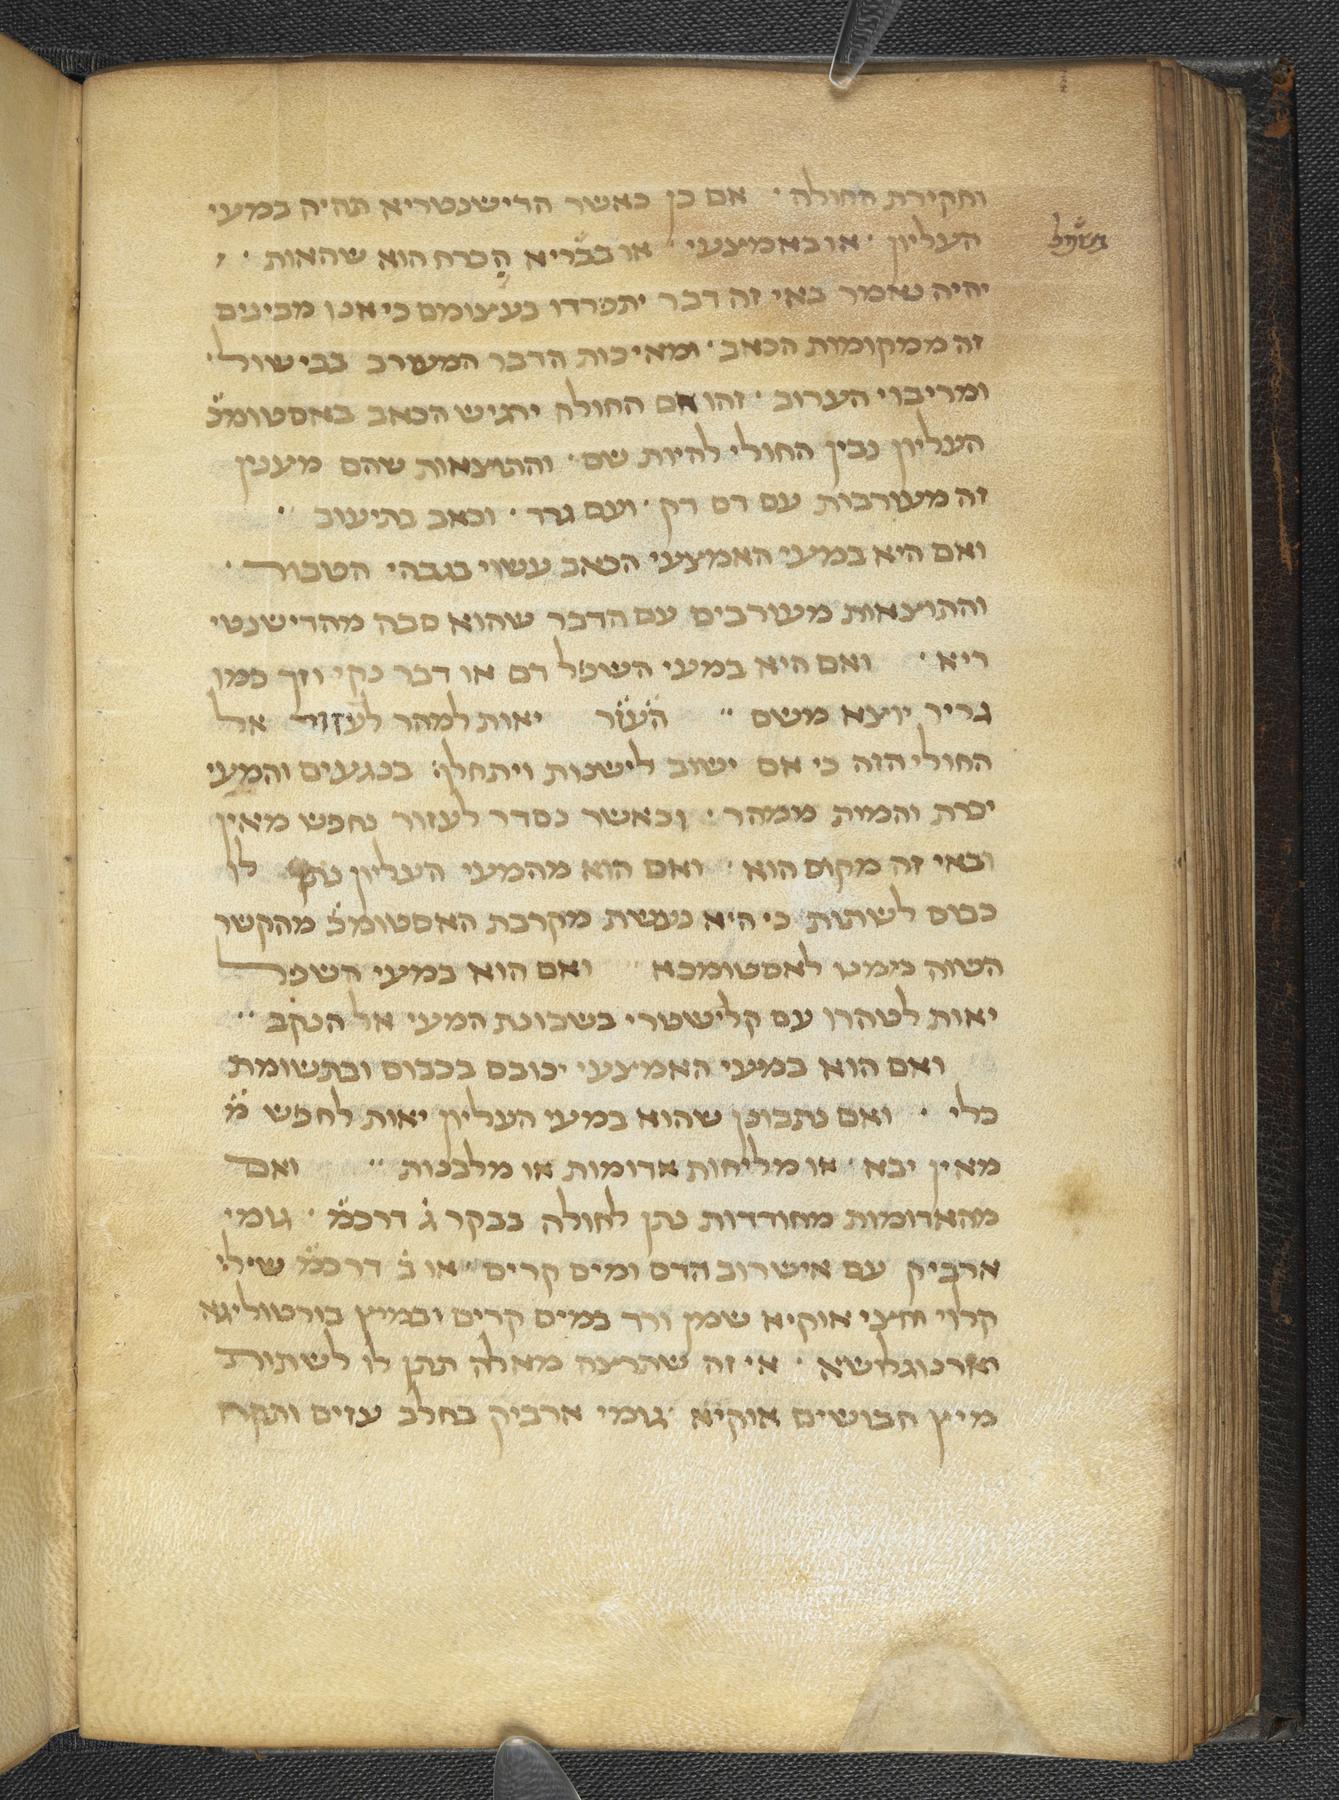 וחקירת החולה · אם כן כאשר הדישנטריא תהיה במעי
העליון · או באמצעי · או בבריא הכרח הוא שהאות ·
יהיה נאמר באי זה דבר יתפרדו בעצומם כי אנו מבינים
זה ממקומות הכאב · ומאיכות הדבר המעורב בבישול ·
ומריבוי הערוב · זהו אם החולה ירגיש הכאב באסטומכ̈
העליון נבין החולי להיות שם · וההוצאות שהם מענין
זה מעורבות עם דם דק · ועם גרד · וכאב בתיעוב ·
ואם היא במעי האמצעי הכאב עשוי בגבהי הטבור ·
וההוצאות מעורבים עם הדבר שהוא סבה מהדישנטי
ריא · ואם היא במעי השפל דם או דבר נקי וזך כמו
גריר יוצא משם ·· יאות למהר לעזור אל
החולי הזה כי אם ישוב לישנות ויתחלף בנגעים והמעי
יכרת והמות ממהר · וכאשר נסדר לעזור נחפש מאין
ובאי זה מקום הוא · ואם הוא מהמעי העליון לו
כבוס לשתות כי היא נמשת מקרבת האסטומכ̈ מהקשר
השוה ממנו לאסטומכא ואם הוא במעי השפל
יאות לטהרו עם קלישטרי בשכונת המעי אל הנקב ··
ואם הוא במעי האמצעי יכובס בכבוס ובתשומת
כלי · ואם נתבונן שהוא במעי העליון יאות לחפש מ̈
מאין יבא · או מליחות אדומות או מלבנות ·· ואם
מהאדומות מחודדות נתן לחולה בבקר ג̇ דרכמ̈ · גומי
ארביק עם אישרוב הדס ומים קרים · או ב̇ דרכמ̈ שילי
קלוי וחצי אוקיא שמן ורד במים קרים ובמיץ בורטוליגא
וארנוגלושא · אי זה שתרצה מאלה תתן לו לשתות
מיץ חבושים אוקיא גומי ארביק בחלב עזים ותקח